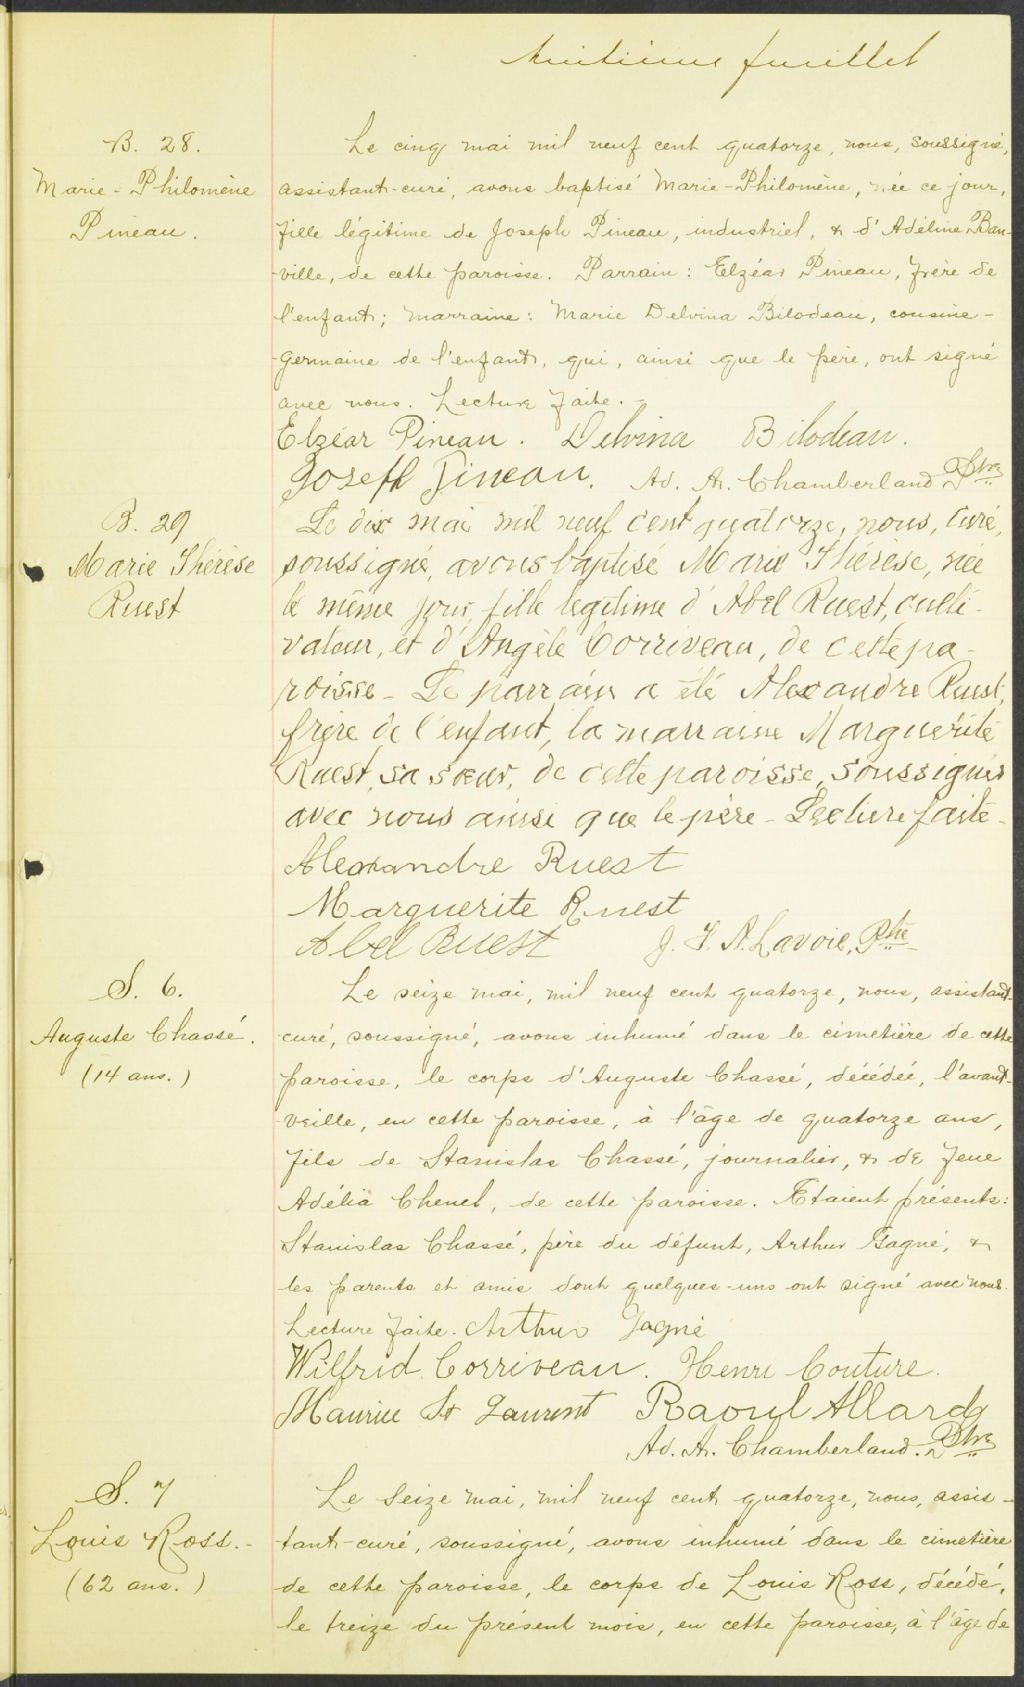 huitième feuillet
B. 28.
Marie-Philomène
Pineau.
Le cinq mai mil neuf cent quatorze, nous, soussigné,
assistant-curé, avons baptisé Marie-Philomène, née ce jour,
fille légitime de Joseph Pineau, industriel, & d'Adéline Ban-
-ville, de cette paroisse. Parrain: Elzéar Pineau, frère de
l'enfant; marraine: Marie Delvina Bilodeau, cousine-
-germaine de l'enfant, qui, ainsi que le père, ont signé
avec nous. Lecture faite.-
Elzéar Pineau. Delvina Bilodeau.
Joseph Pineau. Ad. An. Chamberland Ptre
B. 29
Marie Thérèse
Ruest
Le dix mai mil neuf cent quatorze, nous, curé,
soussigné, avons baptisé Marie Thérèse, née
le même jour, fille légitime d'Abel Ruest, culti-
vateur, et d'Angèle Corriveau, de cette pa-
roisse - Le parrain a été Alexandre Ruest,
frère de l'enfant, la marraine Marguerite
Ruest, sa sœur, de cette paroisse, soussignés
avec nous ainsi que le père - Lecture faite -
Alexandre Ruest
Marguerite Ruest
Abel Ruest J. T. A. Lavoie, Ptre
S. 6.
Auguste Chassé.
(14 ans.)
Le seize mai, mil neuf cent quatorze, nous, assistant-
-curé, soussigné, avons inhumé dans le cimetière de cette
paroisse, le corps d'Auguste Chassé, décédé, l'avant-
-veille, en cette paroisse, à l'âge de quatorze ans,
fils de Stanislas Chassé, journalier, & de feue
Adélia Chenel, de cette paroisse. Etaient présents:
Stanislas Chassé, père du défunt, Arthur Gagné, &
les parents et amis dont quelques-uns ont signé avec nous.
Lecture faite. Arthur Gagné
Wilfrid Corriveau. Henri Couture.
Maurice St Laurent Raoul Allard
Ad. An. Chamberland. Ptre
S. 7
Louis Ross.-
(62 ans.)
Le Seize mai, mil neuf cent quatorze, nous, assis-
tant-curé, soussigné, avons inhumé dans le cimetière
de cette paroisse, le corps de Louis Ross, décédé,
le treize du présent mois, en cette paroisse, à l'âge de